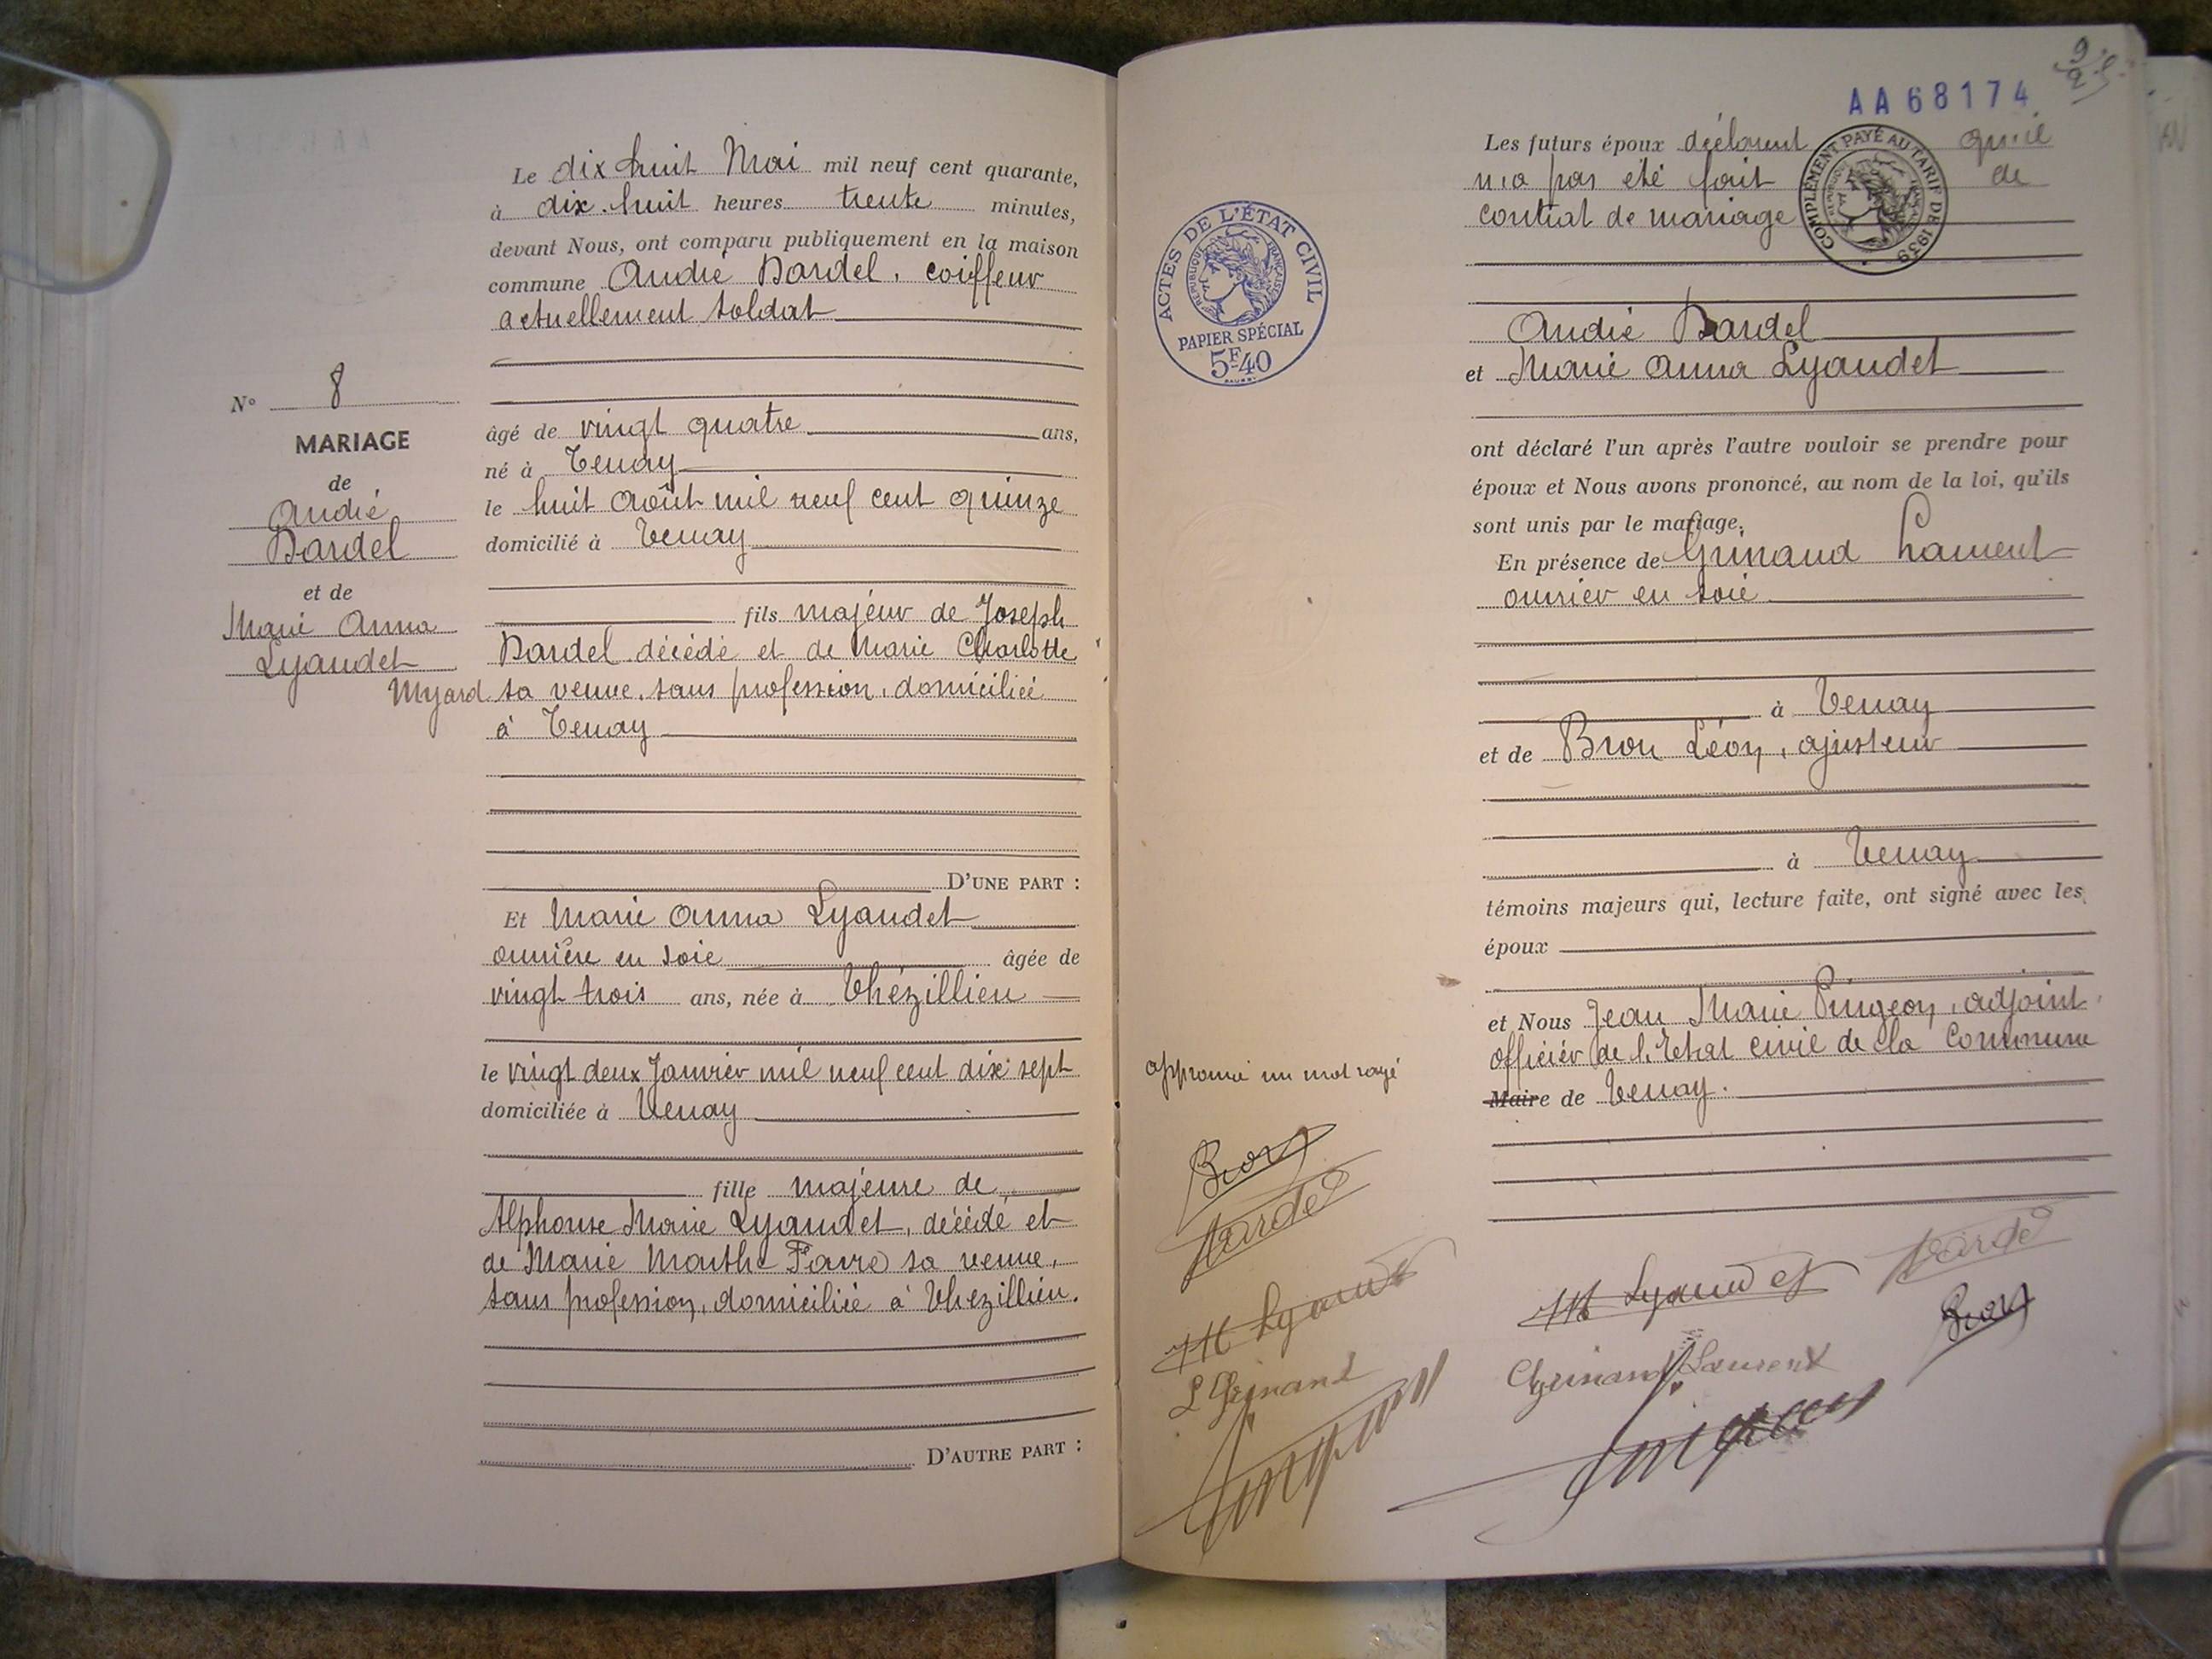 Le dix huit Mai mil neuf cent quarante,
à dix-huit heures trente minutes,
devant Nous, ont comparu publiquement en la maison
commune André Dardel, coiffeur
actuellement soldat
N° 8
MARIAGE
de
André
Dardel
et de
Marie Anna
Lyaudet
âgé de vingt quatre ans,
né à Tenay
le huit Août mil neuf cent quinze
domicilié à Tenay
fils majeur de Joseph
Dardel décédé et de Marie Charlotte
Myard sa veuve, sans profession, domiciliée
à Tenay
D'UNE PART :
Et Marie Anna Lyaudet
ouvrière en soie âgée de
vingt trois ans, née à Thézillieu
le vingt deux Janvier mil neuf cent dix sept
domiciliée à Tenay
fille majeure de
Alphonse Marie Lyaudet, décédé et
de Marie Marthe Favre sa veuve,
sans profession, domiciliée à Thezillieu.
D'AUTRE PART :
AA68174
Les futurs époux déclarent qu'il
n'a pas été fait de
contrat de mariage
COMPLÉMENT PAYÉ AU TARIF DE 1939
ACTES DE L'ÉTAT CIVIL
RÉPUBLIQUE FRANÇAISE
PAPIER SPÉCIAL
5F40
André Dardel
et Marie Anna Lyaudet
ont déclaré l'un après l'autre vouloir se prendre pour
époux et Nous avons prononcé, au nom de la loi, qu'ils
sont unis par le mariage.
En présence de Grinand Laurent
ouvrier en soie
à Tenay
et de Bron Léon, ajusteur
à Tenay
témoins majeurs qui, lecture faite, ont signé avec les
époux
et Nous Jean Marie Pingeon, adjoint,
officier de l'Etat civil de la Commune
Maire de Tenay.
approuvé un mot rayé
Bron
Dardel
M Lyaudet
L Grinand
Pingeon
M Lyaudet
Dardel
Bron
Grinand Laurent
Pingeon